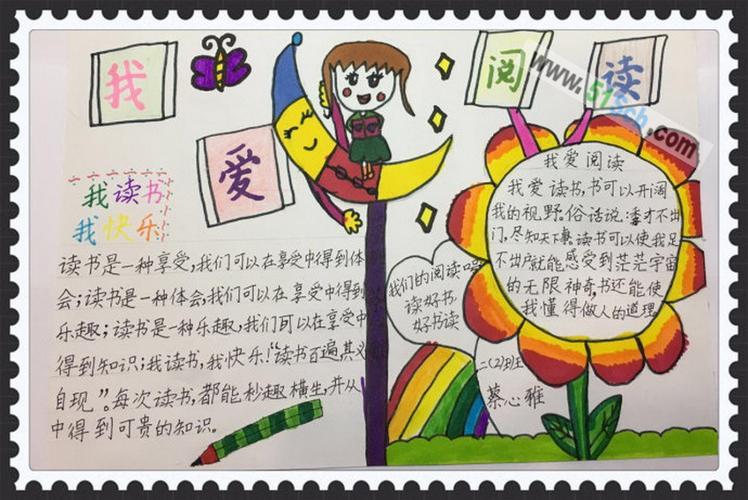 我
爱
阅
读
www.51sch.com
我读书
我快乐
读书是一种享受,我们可以在享受中得到体
会;读书是一种体会,我们可以在享受中得到
乐趣;读书是一种乐趣,我们可以在享受中
得到知识;我读书,我快乐!“读书百遍,其义
自现”。每次读书,都能秒趣横生,并从
中得到可贵的知识。
我们的阅读
读好书
好书读
我爱阅读
我爱读书,书可以开阔
我的视野。俗话说:才不出
门,尽知天下事。读书可以使我足
不出户就能感受到茫茫宇宙
的无限神奇,书还能使
我懂得做人的道理。
二(2)班
蔡心雅